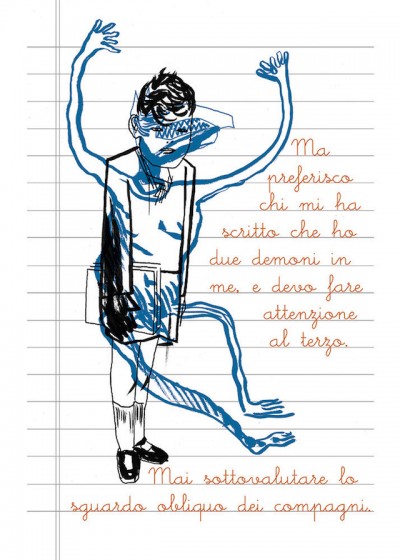 Ma
preferisco
chi mi ha
scritto che ho
due demoni in
me, e devo fare
attenzione
al terzo.
Mai sottovalutare lo
sguardo obliquo dei compagni.